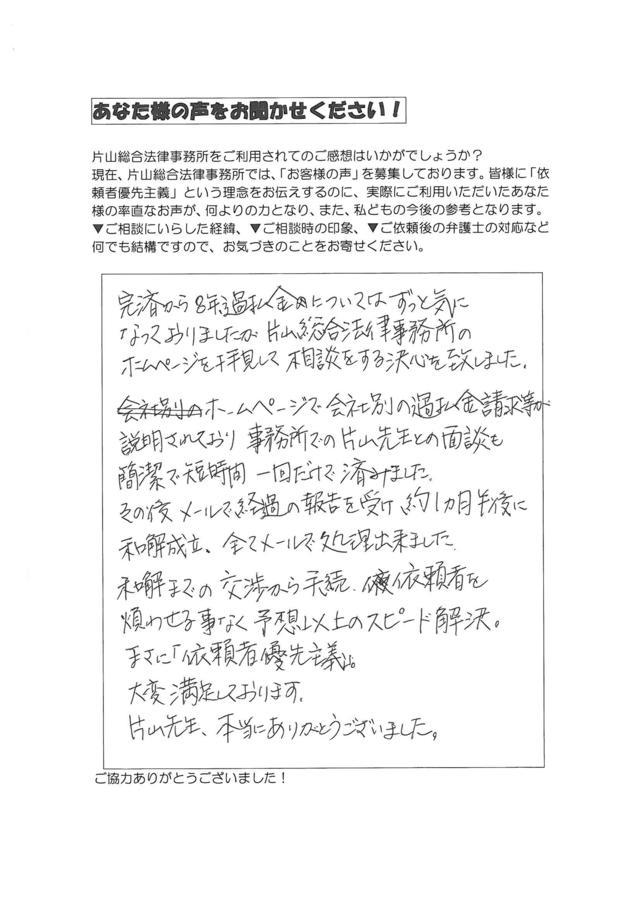 あなた様の声をお聞かせください！
片山総合法律事務所をご利用されてのご感想はいかがでしょうか？
現在、片山総合法律事務所では、「お客様の声」を募集しております。皆様に「依
頼者優先主義」という理念をお伝えするのに、実際にご利用いただいたあなた
様の率直なお声が、何よりの力となり、また、私どもの今後の参考となります。
▼ご相談にいらした経緯、▼ご相談時の印象、▼ご依頼後の弁護士の対応など
何でも結構ですので、お気づきのことをお寄せください。
完済から8年過払金についてはずっと気に
なっておりましたが片山総合法律事務所の
ホームページを拝見して相談をする決心を致しました。
会社別のホームページで会社別の過払金請求等が
説明されており事務所での片山先生との面談も
簡潔で短時間一回だけで済みました。
その後メールで経過の報告を受け約1カ月半後に
和解成立、全てメールで処理出来ました。
和解までの交渉から手続、依頼者を
煩わせる事なく予想以上のスピード解決。
まさに「依頼者優先主義」。
大変満足しております。
片山先生、本当にありがとうございました。
ご協力ありがとうございました！